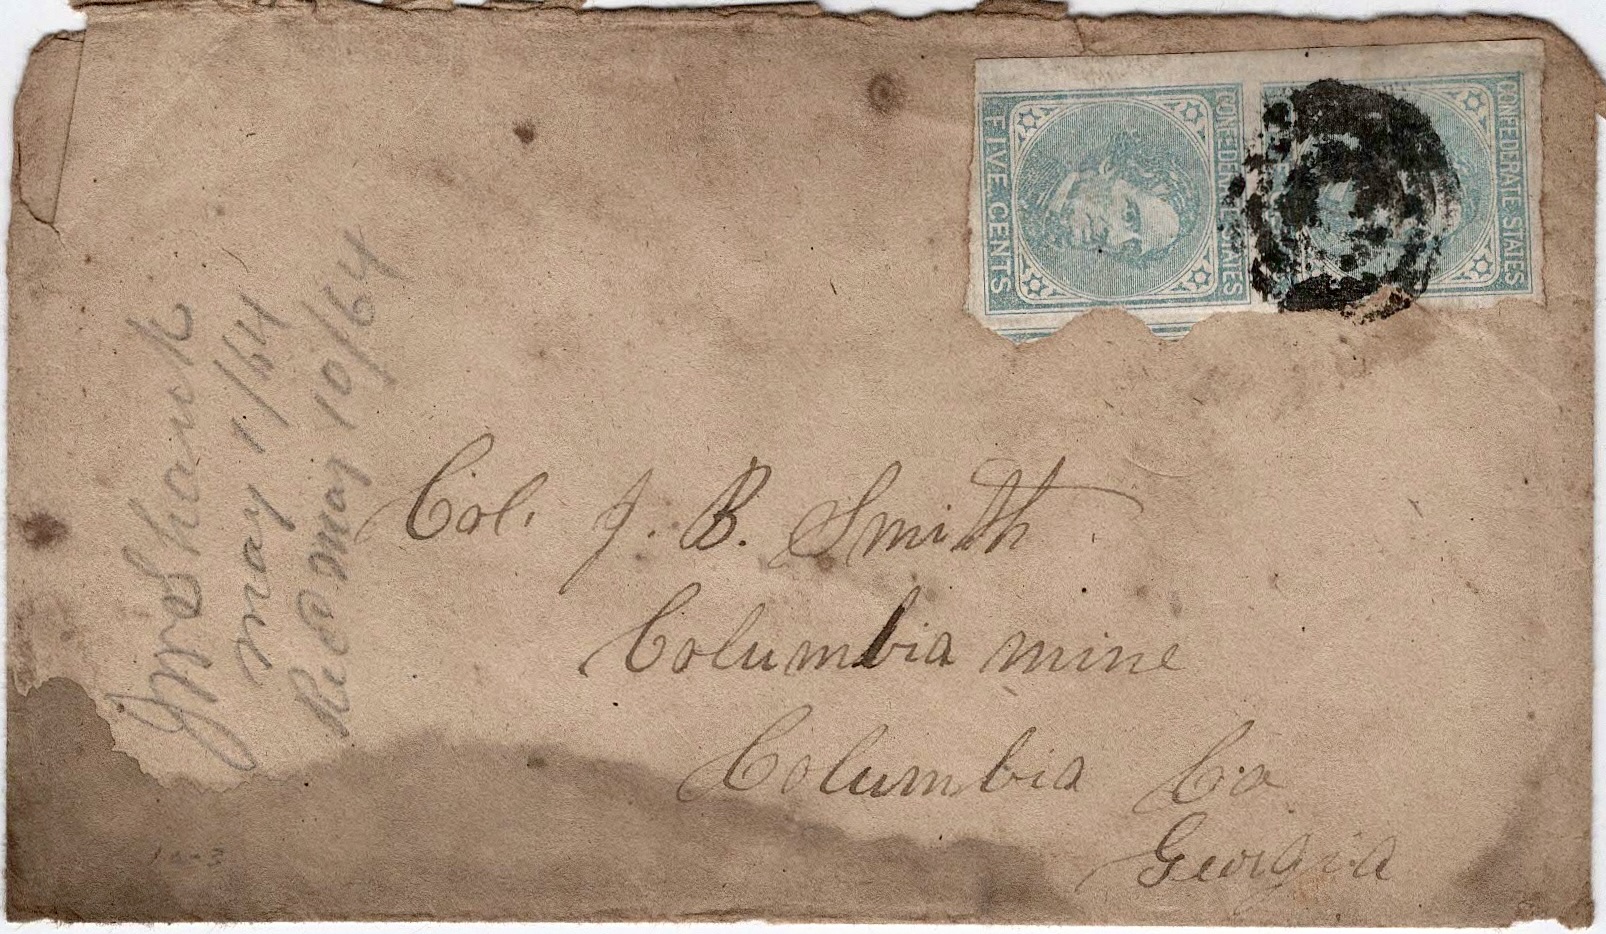 FIVE CENTS
CONFEDERATE STATES
CONFEDERATE STATES
Shank
May 1/64
Recd May 10/64
Col. J. B. Smith
Columbia mine
Columbia Co
Georgia